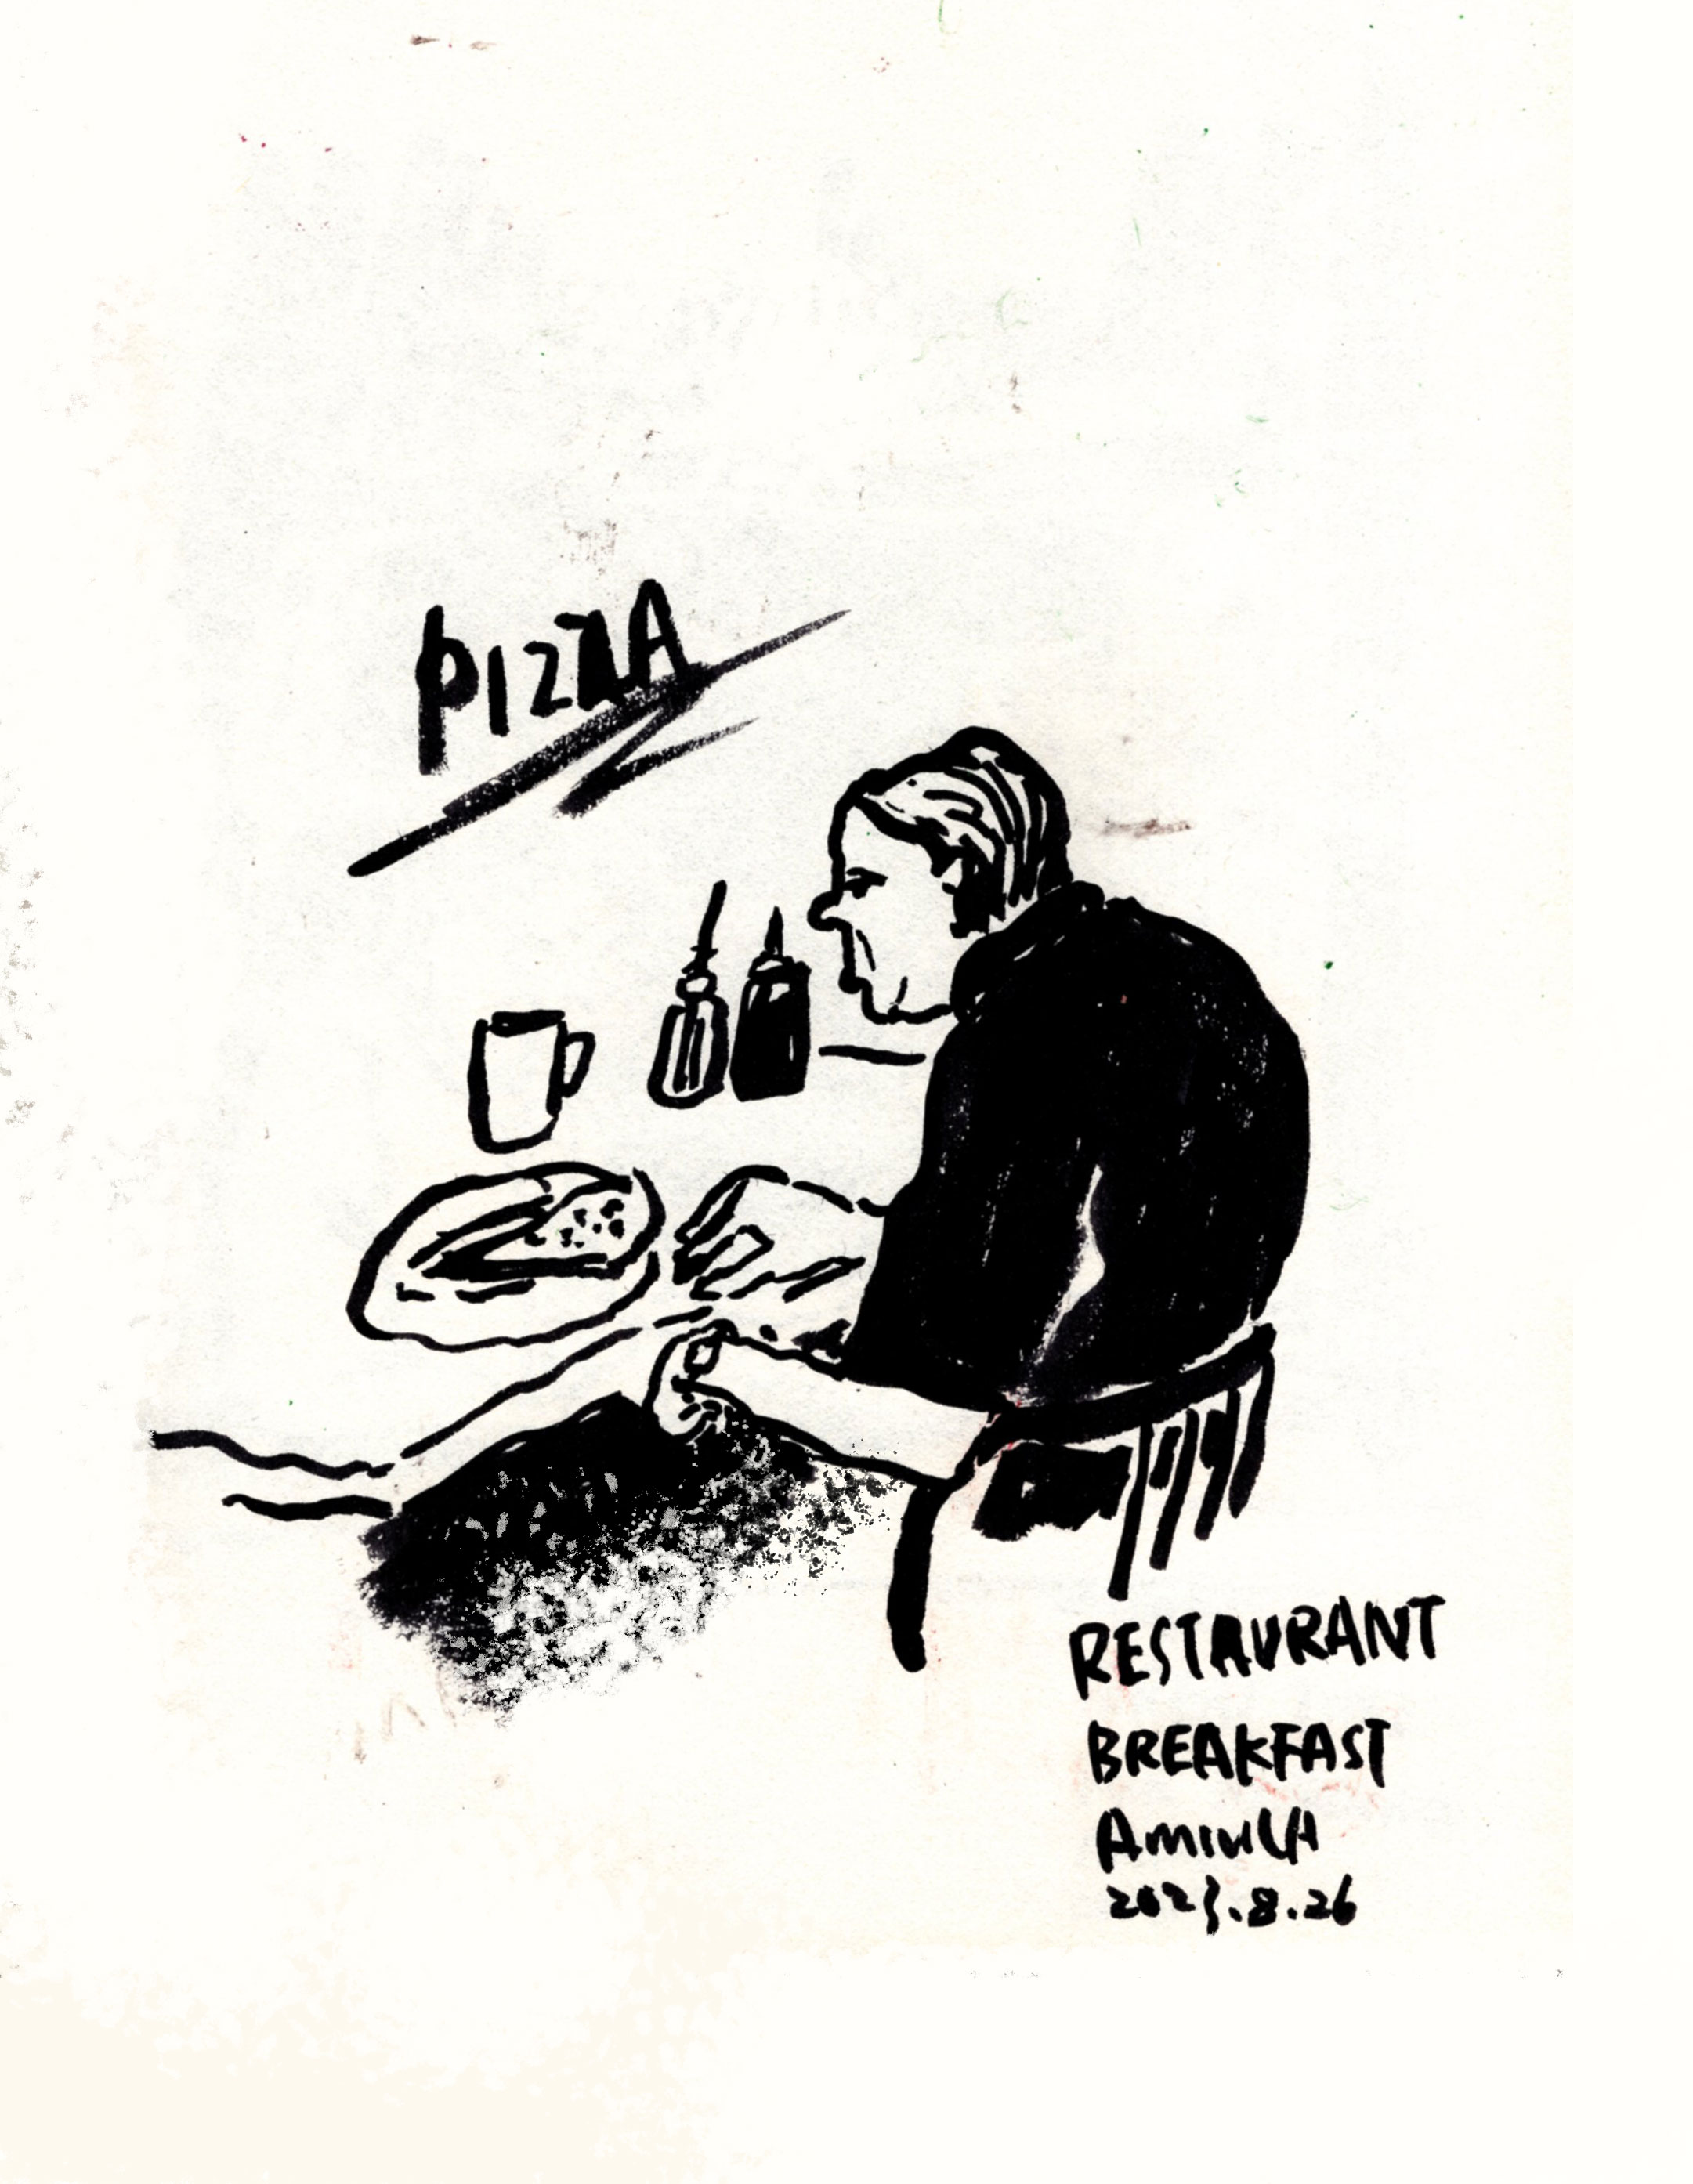 PIZZA
RESTAURANT
BREAKFAST
2023.8.26